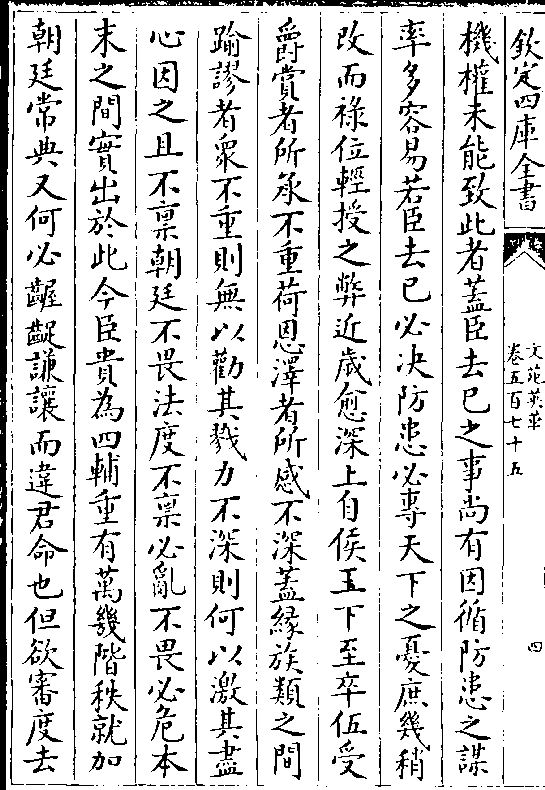 欽定四庫全書
文苑英華
卷五百七十五
四
機權未能致此者蓋臣去已之事尚有因循防患之謀
率多容易若臣去已必决防患必專天下之憂庶幾稍
改而祿位輕授之弊近歲愈深上自侯王下至卒伍受
爵賞者所承不重荷恩澤者所感不深蓋緣族類之間
踰謬者衆不重則無以勸其戮力不深則何以激其盡
心因之且不禀朝廷不畏法度不禀必亂不畏必危本
末之間實出於此今臣貴為四輔重有萬幾階秩就加
朝廷常典又何必齷齪謙讓而違君命也但欲審度去